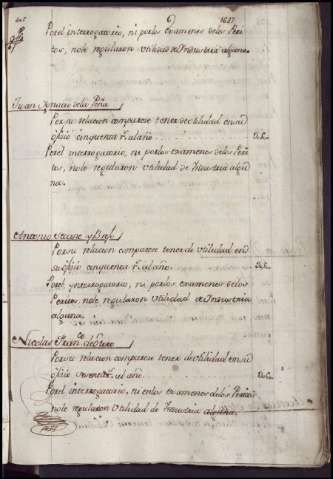 Por el interrogatorio, ni por los examenes de los Peri
tos, no le regularon utilidad de Industria alguna.
Juan Ignacio de la Peña
Por su relacion comparece tener de Utilidad en su
ofizio cinquenta rs. al año
Por el interrogatorio, ni por los examenes de los Peri
tos, no le regularon utilidad de Industria algu
na.
Antonio y
Por su relacion comparece tener de utilidad en
su ofizio cinquenta rs. al año.
Por el ynterrogatorio, ni por los examenes de los
Peritos, no le regularon Utilidad de Industria
alguna.
Nicolas Fran.co
Por su relacion comparece tener de utilidad en su
ofizio al año.
Por el interrogatorio, ni en los examenes de los Peritos
no le regularon Utilidad de Industria alguna.